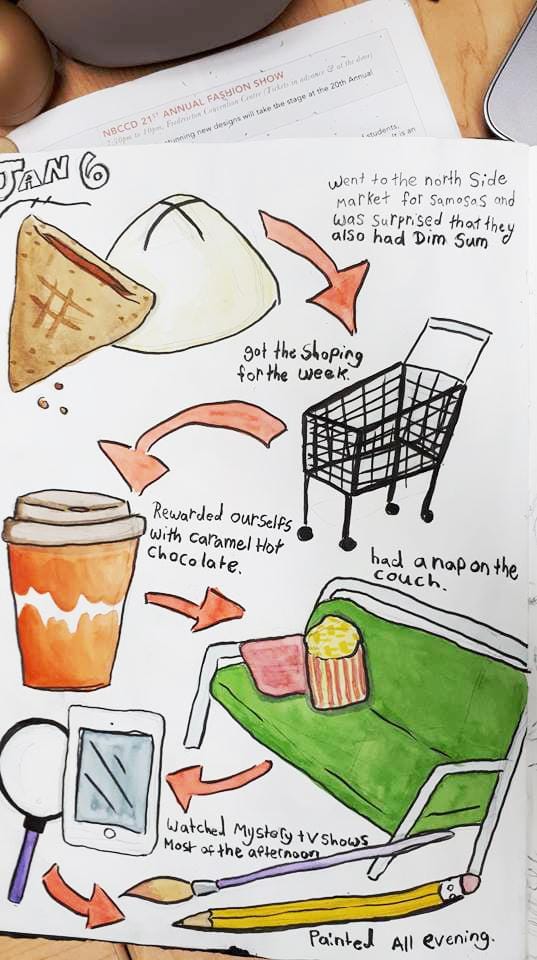 NBCCD 21ST ANNUAL FASHION SHOW
7:30pm to 10pm, Fredericton Convention Centre (Tickets in advance & at the door)
stunning new designs will take the stage at the 20th Annual
students,
It is an
JAN 6
went to the north Side
market for samosas and
was surprised that they
also had Dim Sum
got the Shoping
for the week.
Rewarded ourselfs
with caramel Hot
chocolate.
had a nap on the
couch.
Watched Mystery tv shows
Most of the afternoon
Painted All evening.